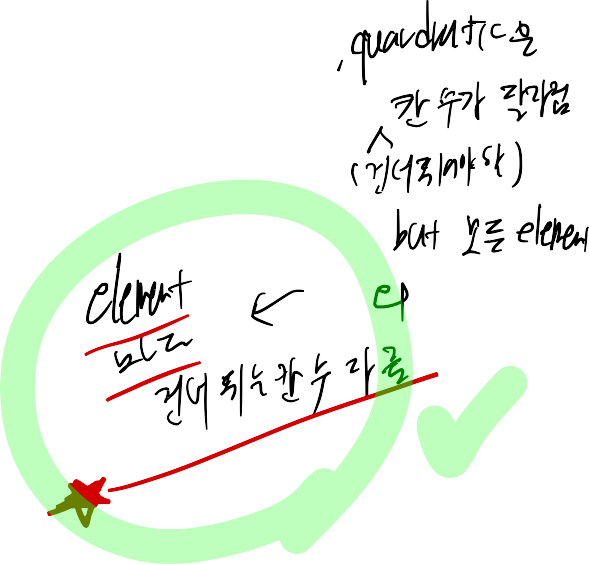 quardratic은
칸 수가 달라짐
(건너뛰어야 할)
but 모든 element
element ←
마다
건너 뛰는 칸 수 다름